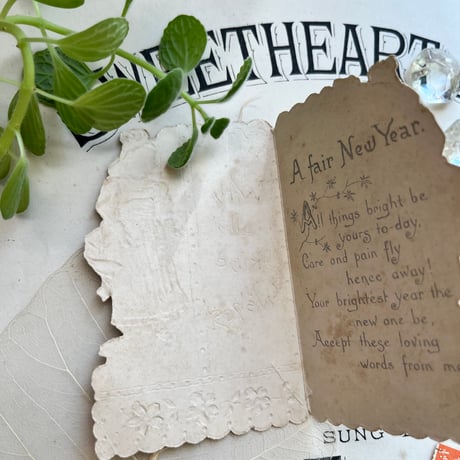 SWEETHEART
A fair New Year.
All things bright be
yours to-day,
Care and pain fly
hence away!
Your brightest year the
new one be,
Accept these loving
words from me
SUNG